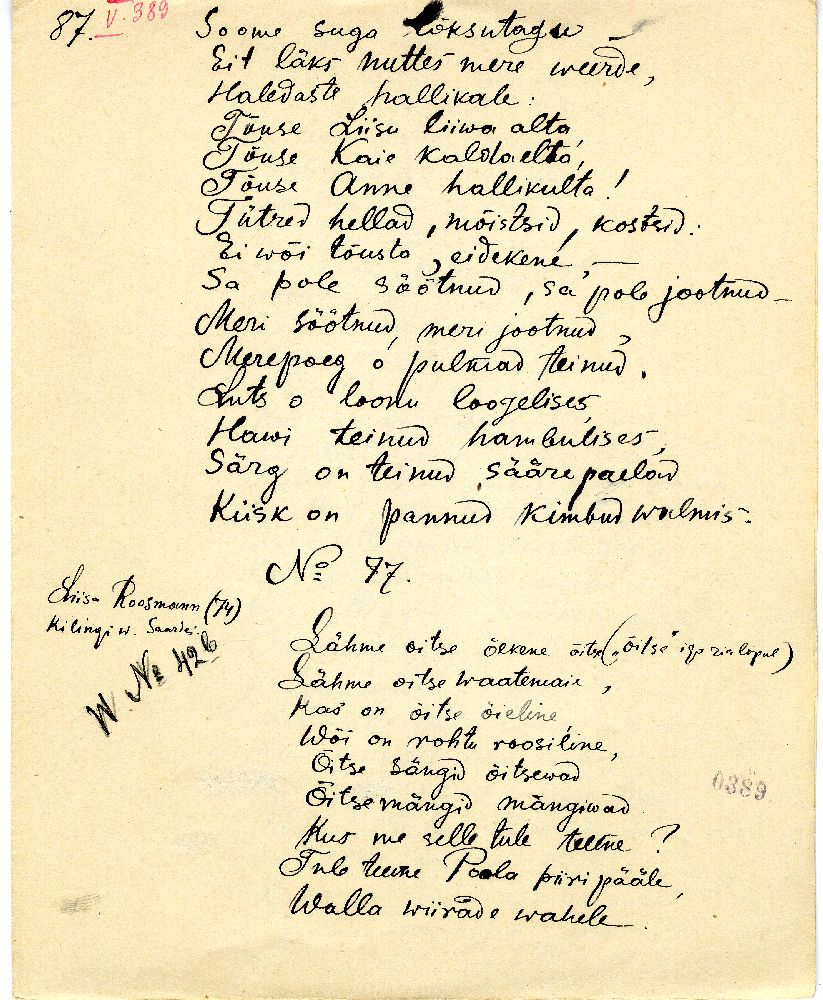 87. V. 389
Soome suga lõksutagu –
Eit läks nuttes mere weerde,
Haledaste hallikale:
Tõuse Liisu liiwa alta,
Tõuse Kaie kalda alta,
Tõuse Anne hallikulta!
Tütred hellad, mõistsid, kostsid:
Ei wõi tõusta, eidekene, –
Sa pole söötnud, sa pole jootnud –
Meri söötnud, meri jootnud,
Merepoeg o pulmad teinud.
Luts o loonu loogelises,
Hawi teinud hambulises,
Särg on teinud sääre paelad
Kiisk on pannud kimbud walmis.
No 77.
Liisa Roosmann (74)
Kilingi w. Saardes.
W. No 426
Lähme õitse õekene õitse („õitse" iga ria lopul)
Lähme õitse waatemaie,
Kas on õitse õieline,
Wõi on rohtu roosiline,
Õitse sängid õitsewad
Õitse mängid mängiwad
Kus me selle tule teeme?
Tule teeme Poola piiri pääle,
Walla wiirade wahele.
0389